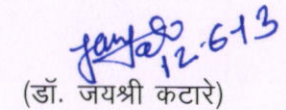 12.6.13
(डॉ. जयश्री कटारे)